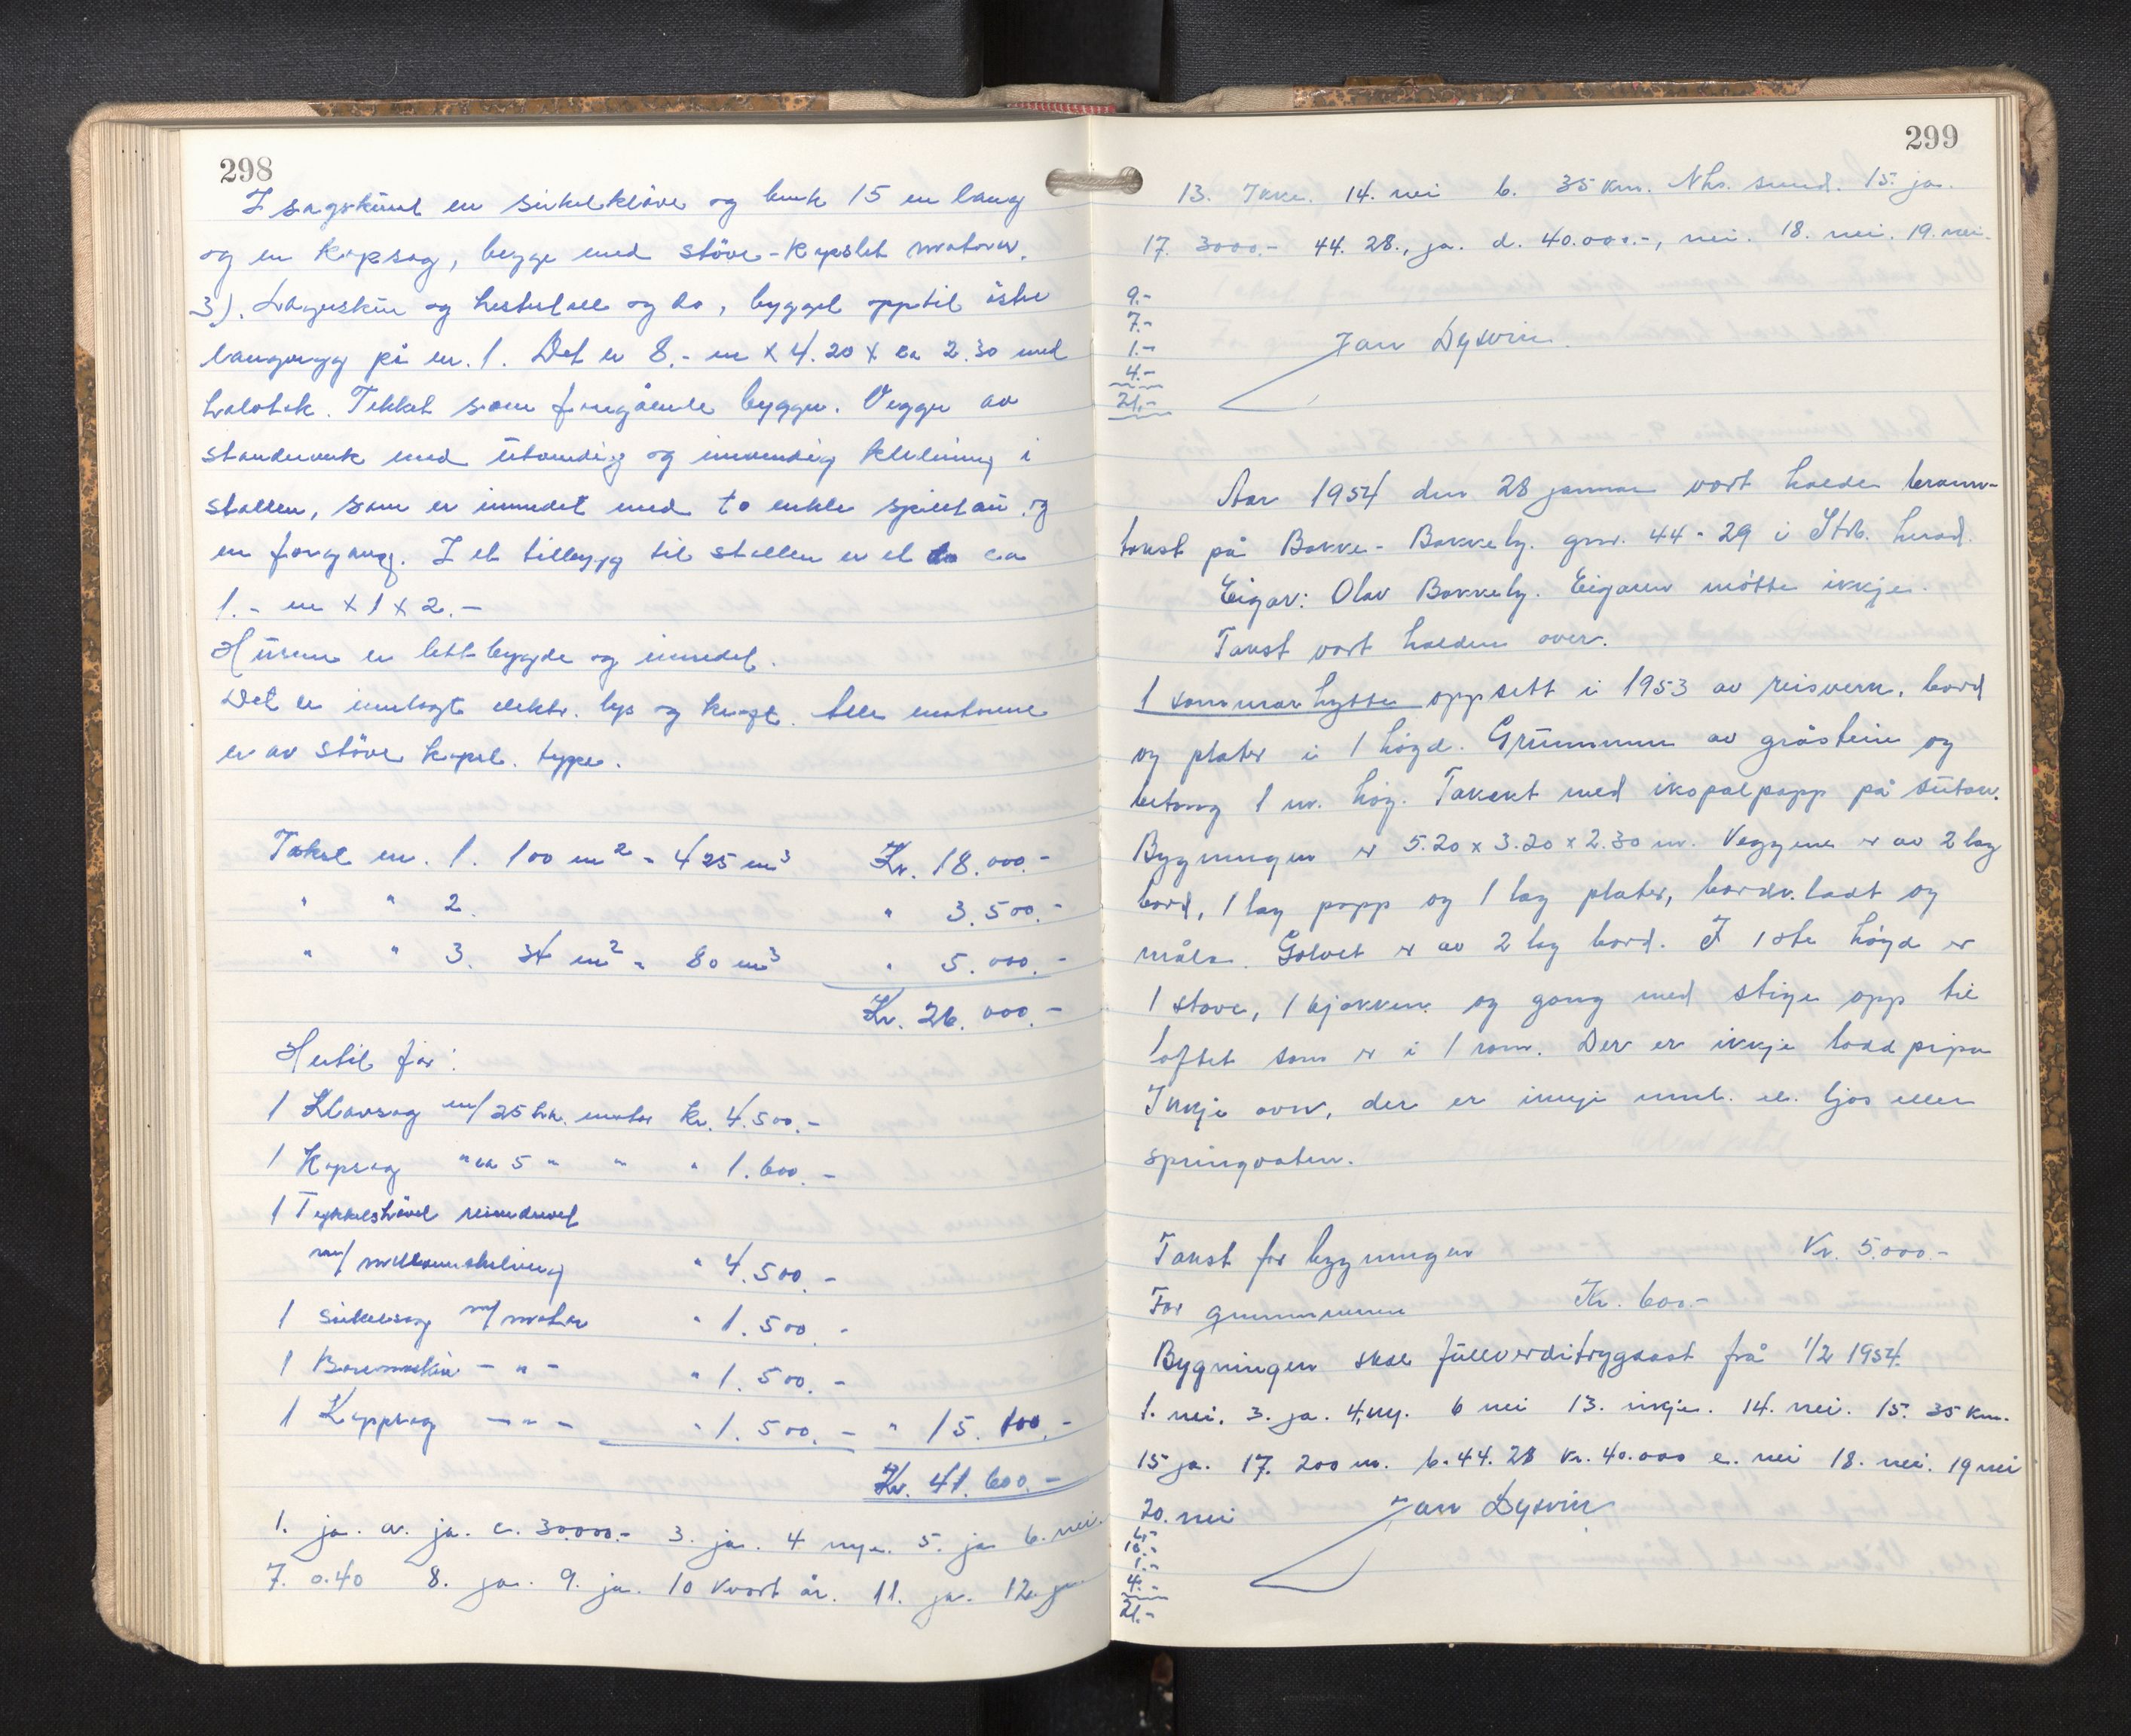 298
I sagskuret en sirkelkløve og benk 15 m lang
og en kapsag, begge med støv-kapslet motorer.
3). Lagerskur og hestestall og do, bygget opptil østre
langvegg på nr. 1. Det er 8.- m x 4.20 x ca 2.30 med
halvtak. Tekket som foregående bygger. Vegger av
standerverk med utvendig og innvendig kledning i
stallen, som er innredet med to enkle spiltau og
en forgang. I et tilbygg til stallen er et do ca
1.- m x 1 x 2.-
Husene er lett bygde og innredet.
Det er innlagt elektr. lys og kraft. Alle motorene
er av støv kapsl. type.
Takst nr. 1. 100 m² - 425 m³ Kr. 18.000.-
" " 2. " 3.500.-
" " 3. 34 m² - 80 m³ " 5.000.-
Kr. 26.000.-
Hertil for:
1 Kløvsag m/ 25 hk. motor kr. 4.500.-
1 Kapsag " ca 5 " " " 1.600.-
1 Tykkelshøvel reimdrevet
m/ mellomutveksling " 4.500.-
1 Sirkelsag m/ motor " 1.500.-
1 Boremaskin - " - " 1.500.-
1 Kappsag - " - " 1.500.- " 15.100.-
Kr. 41.600.-
1. ja. a. ja. c. 30.000.- 3. ja. 4 nye. 5. ja 6. nei.
7. 0.40 8. ja. 9. ja. 10 Kvart år. 11. ja. 12. ja
299
13. Ikke. 14. nei b. 35 km. Nhs. sund. 15. ja.
17. 3000.- 44. 28., ja. d. 40.000.-, nei. 18. nei. 19. nei.
9.-
7.-
1.-
4.-
21.-
Jan Dysvin.
Aar 1954 den 28 januar vart halde brann-
takst på Bakke - Bakkely. gnr. 44 - 29 i Strb. herad.
Eigar: Olav Bakkely. Eigaren møtte ikkje.
Takst vart halden over.
1 sommarhytte oppsett i 1953 av reisverk, bord
og plater i 1 høgd. Grunnmur av gråstein og
betong 1 m. høg. Takekt med ikopalpapp på sutak.
Bygningen er 5.20 x 3.20 x 2.30 m. Veggene er av 2 lag
bord, 1 lag papp og 1 lag plater, bordkladt og
måla. Golvet er av 2 lag bord. I 1ste høgd er
1 stove, 1 kjøkken og gang med stige opp til
loftet som er i 1 rom. Der er ikkje lodd pipa
Inkje ovn, der er inkje innl. el. ljos eller
springvaten.
Takst for bygningen Kr. 5.000.-
For grunnmuren Kr. 600.-
Bygningen skal fullverditrygdast frå 1/2 1954.
1. nei. 3. ja. 4. ny. 6 nei 13. inkje. 14. nei. 15. 35 km.
15 ja. 17. 200 m. b. 44. 28 kr. 40.000 e. nei 18. nei. 19 nei
20. nei
Jan Dysvin
6.-
10.-
1.-
4.-
21.-